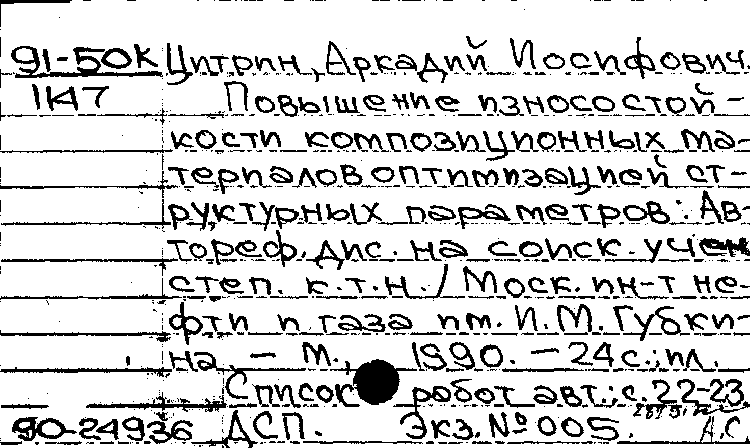 91-50К Цитрин, Аркадий Иосифович.
1147 Повышение износостой-
кости композиционных ма-
териалов оптимизацией ст-
руктурных параметров: Ав-
тореф. дис. на соиск. учен
степ. к.т.н. / Моск. ин-т не-
фти и газа им. И.М. Губки-
на. - М., 1990. - 24 с.: ил.
Список работ авт.: с. 22-23
90-24936 ДСП. Экз. № 005. А.С